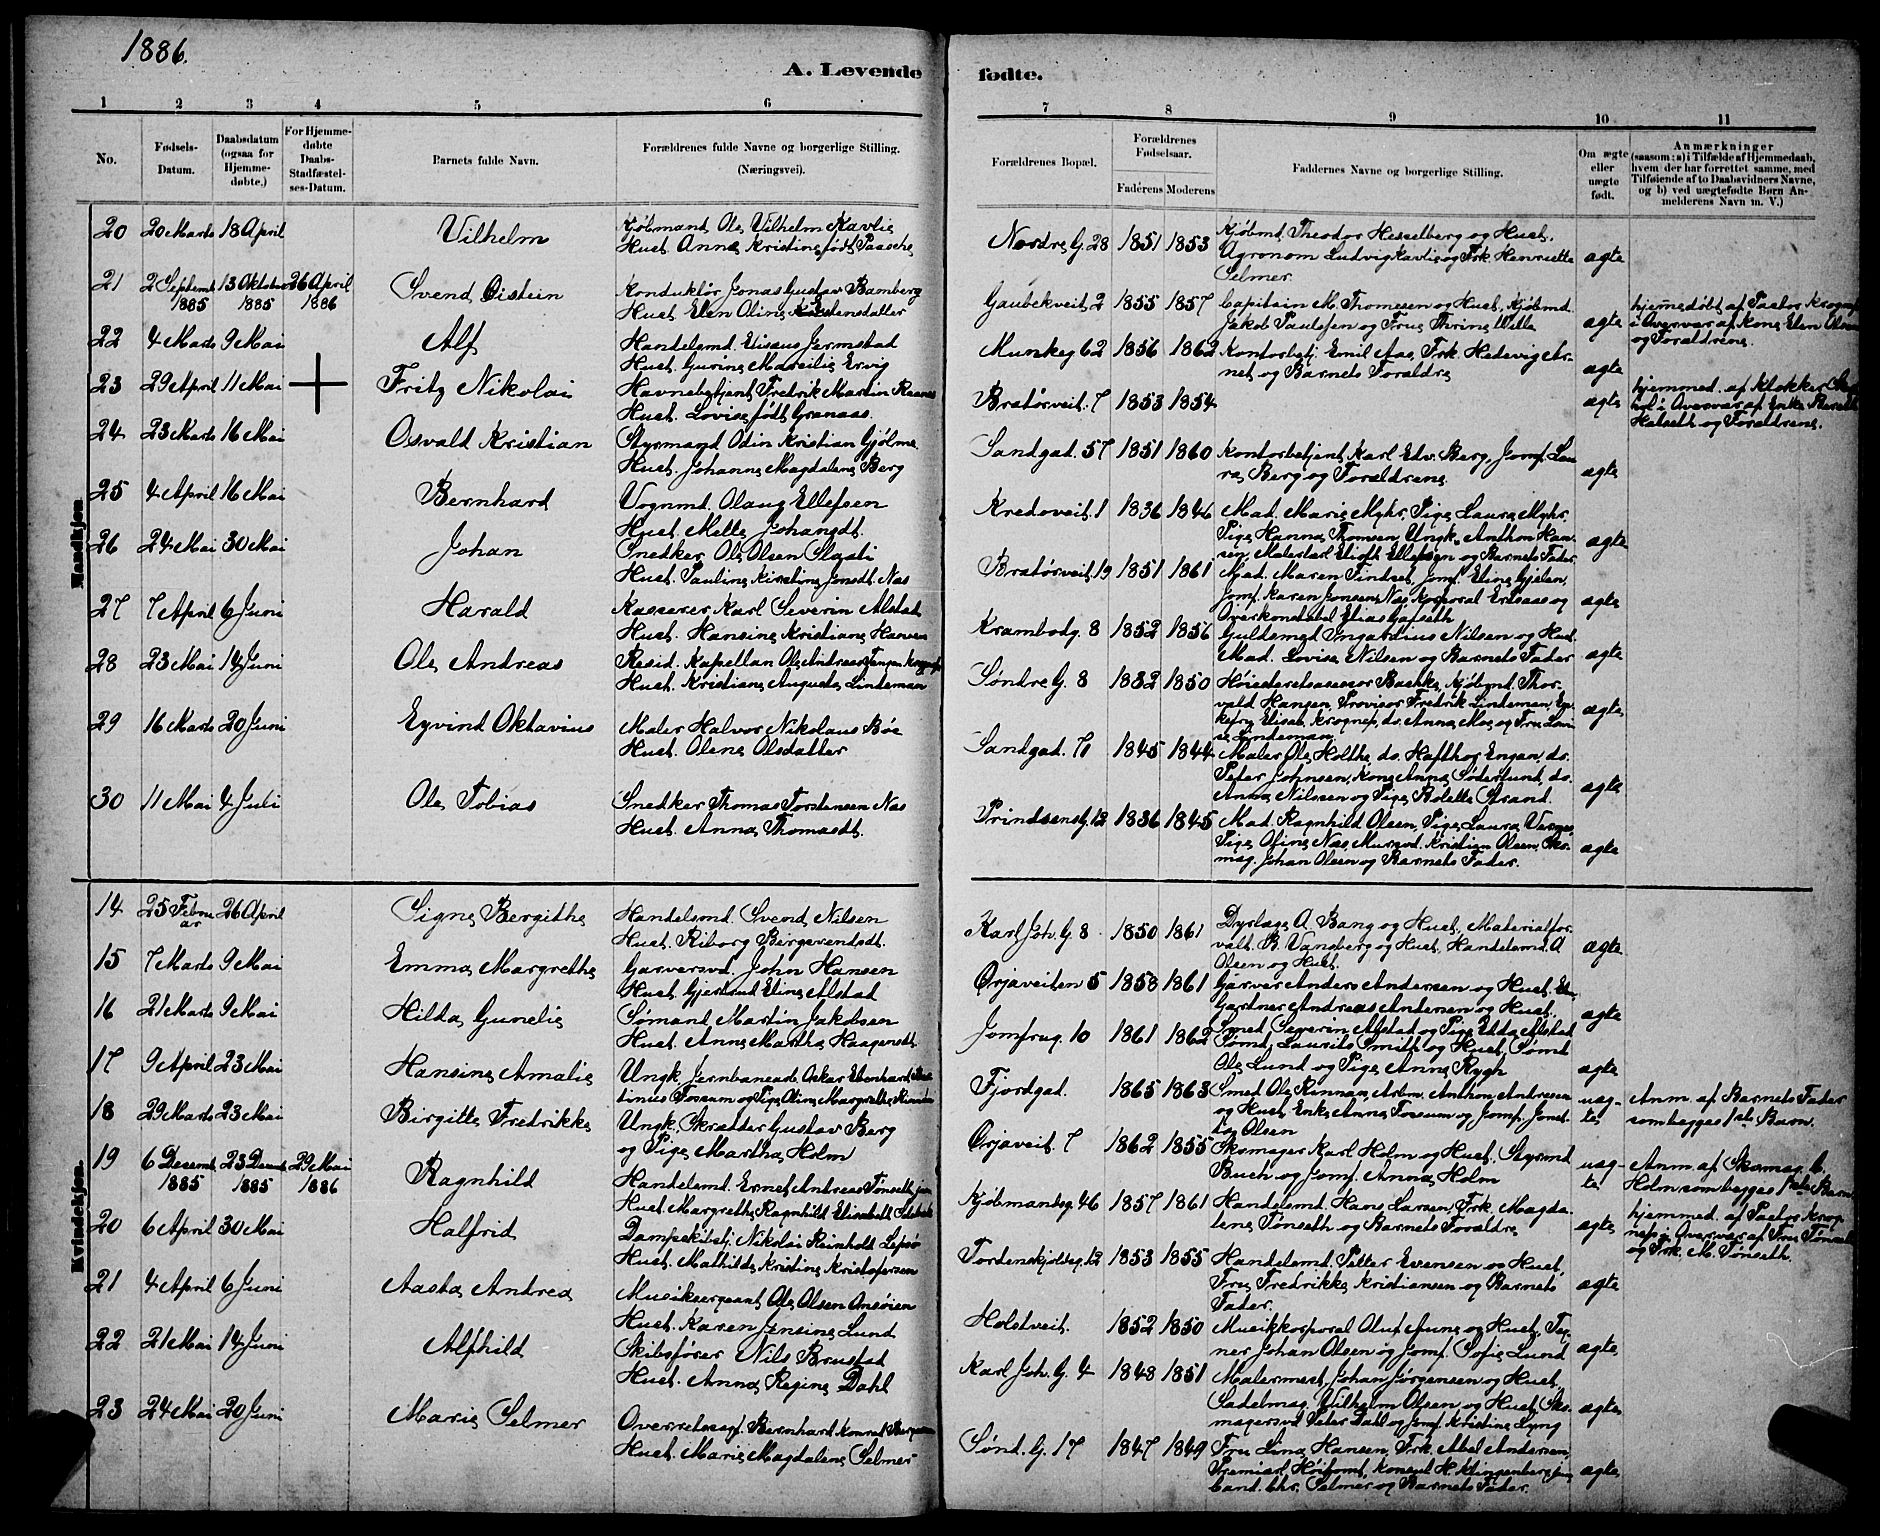 1886.
A. Levende fødte.
1 2 3 4 5 6 7 8 9 10 11
No.
Fødsels-
Datum.
Daabsdatum
(ogsaa for
Hjemme-
døbte.)
For Hjemme-
døbte
Daabs-
Stadfæstel-
ses-Datum.
Barnets fulde Navn.
Forældrenes fulde Navne og borgerlige Stilling.
(Næringsvei).
Forældrenes Bopæl.
Forældrenes
Fødselsaar.
Faderens Moderens
Faddernes Navne og borgerlige Stilling.
Om ægte
eller
uægte
født.
Anmærkninger
(saasom: a) i Tilfælde af Hjemmedaab,
hvem der har forrettet samme, med
Tilføiende af to Daabsvidners Navne,
og b) ved uægtefødte Børn An-
melderens Navn m. V.)
Mandkjøn
20 20 Marts 18 April Vilhelm Kjøbmand Ole Vilhelm Kavlie
Hust. Anna Kristine født Paasche
Nordre G. 28 1851 1853 Kjøbmd. Theodor Hesselberg og Hust.
Agronom Ludvig Kavlie og Frk. Henriette
Selmer ægte
21 2 Septemb. 13 Oktober 26 April Svend Øistein Konduktør Jonas Gustav Bamberg
1885 1885 1886 Hust. Elen Oline Kristensdatter
Gaubekveit 2 1855 1857 Capitain M. Thomesen og Hust. Kjøbmd.
Jakob Paulssen og Fru Thrine Wille ægte
hjemmedøbt af Pastor Krogness
i Overvær af Kone Elen Olsen
og Forældrene.
22 4 Marts 9 Mai Alf Handelsmd. Elisæus Jermstad
Hust. Gurine Mareilie Ervig
Munkeg 62 1856 1862 Kontorbetj. Emil Aas, Frk. Hedevig Ar-
net og Barnets Forældre ægte
23 29 April 11 Mai Fritz Nikolai Havnebetjent Fredrik Martin
Hust. Lovise født Granaas.
Bratørveit. 7 1853 1854 ægte
hjemmed. af Klokker
i Overvær af Enke
Halseth og Forældrene.
24 23 Marts 16 Mai Osvald Kristian Styrmand Odin Kristian Gjølme
Hust. Johanne Magdalene Berg
Sandgad. 57 1851 1860 Kontorbetjent Karl Edv. Berg, Jomf. Lau-
ra Berg og Forældrene. ægte
25 4 April 16 Mai Bernhard Vognmd. Olaug Ellefsen
Hust. Mette Johansdt.
Kredoveit. 1 1836 1846 Mad. Marie Myhr, Pige Laura Myhr.
Pige Hanna Thomsen Ungk. Anthon Han-
sen, Malerlærl. Eliott Ellefsen og Barnets Fader ægte
26 24 Mai 30 Mai Johan Snedker Ole Olsen
Hust. Pauline Kirstine Jonsdt. Næs
Bratørveit. 19 1851 1861 Mad. Maren Tindset, Jomf. Eline Gjelen,
Jomf. Karen Jonsen Næs, Korporal Ertsaas og
Overkonstabel Elias Gafseth ægte
27 7 April 6 Juni Harald Kasserer Karl Severin Alstad
Hust. Hansine Kristiane Hansen
Krambodg. 8 1852 1856 Guldsmed Ingardius Nilsen og Hust.
Mad. Lovise Nilsen og Barnets Fader ægte
28 23 Mai 14 Juni Ole Andreas Resid. Kapellan Ole Andreas Tangen Krogness
Hust. Kristiane Augusta Lindeman
Søndre G. 8 1832 1850 Høiesteretsassessor Bachke, Kjøbmd. Thor-
vald Hansen, Provisor Fredrik Lindeman, En-
kefru Elisab. Krogness, do. Anna Moe og Fru Lovi-
se Lindeman ægte
29 16 Marts 20 Juni Eyvind Oktavius Maler Halvor Nikolaus Bøe
Hust. Olene Olsdatter
Sandgad. 71 1845 1844 Maler Ole Holthe, do. Hafthor Engan, do.
Peter Johnsen, Kone Anna Søderlund, do.
Anna Nilssen og Pige Bolette Strand. ægte
30 11 Mai 4 Juli Ole Tobias Snedker Thomas Torstensen Næs
Hust. Anna Thomasdt.
Prindsensg. 12 1836 1845 Mad. Ragnhild Olsen, Pige Laura
Pige Ofine Næs, Mursvd. Kristian Olsen, Sko-
mag. Johan Olsen og Barnets Fader. ægte
Kvindekjøn
14 25 Febru- 26 April Signe Bergithe Handelsmd. Svend Nilsen
ar Hust. Riborg Birgevendsdt.
Karl Joh. G. 8 1850 1861 Dyrlæge A. Bang og Hust, Materialfor-
valt. B. Vangberg og Hust. Handelsmd. A
Olsen og Hust. ægte
15 7 Marts 9 Mai Emma Margrethe Garversvd. John Hansen
Hust. Gjertrud Eline Alstad
Ørjaveiten 5 1858 1861 Garver Anders Andersen og Hust.
Gartner Andreas Andersen og Hust.
Smed Severin Alstad og Pige Edda Alstad ægte
16 21 Marts 9 Mai Hilda Gunelie Sømand Martin Jakobsen
Hust. Anna Martha Haagensdt.
Jomfrug. 10 1861 1862 Sømd. Laurits Smith og Hust, Sømd
Ole Lund og Pige Anna Rygh ægte
17 9 April 23 Mai Hansine Amalie Ungk. Jernbanearb. Oskar Edenhard
tinus Fossum og Pige Oline Margrethe
Fjordgad. 1865 1863 Smed Ole Rinnan, Arbm. Anthon Andresen
og Hust, Enke Anna Fossum og Jomf.
Olsen uæg-
te Anm. af Barnets Fader
som begges 1ste Barn.
18 29 Marts 23 Mai Birgitte Fredrikke Ungk. Skrædder Gustav Berg
og Pige Martha Holm
Ørjaveit. 7 1862 1855 Skomager Karl Holm og Hust. Styrmd
Buch og Jomf. Anna Holm uæg-
te Anm. af Skomag. C.
Holm som begges 1ste Barn
19 6 Desemb. 23 Desemb. 29 Mai Ragnhild Handelsmd. Ernst Andreas Tønseth jun
1885 1885 1886 Hust. Margrethe Ragnhild Elisabeth
Kjøbmandsg. 46 1857 1861 Handelsmd. Hans Larsen, Frk. Magda-
lene Tønseth og Barnets Forældre ægte
hjemmed. af Pastor Krog-
ness i Overvær af Fru Tønseth
og Frk. M. Tønseth.
20 6 April 30 Mai Halfrid Dampskibsbj. Nikolai Reinholt Lepsø
Hust. Mathilde Kristine Kristofersen
Tordenskjoldsg. 12 1853 1855 Handelsmd. Petter Evensen og Hust,
Fru Fredrikke Kristiansen og Barnets
Fader. ægte
21 4 April 6 Juni Aasta Andrea Musiksergeant Ole Olsen Ansøien
Hust. Karen Jensine Lund
Holstveit. 1852 1850 Musikkorporal Oluf Aune og Hust,
Johan Olsen og Jomf. Sofie Lund ægte
22 21 Mai 14 Juni Alfhild Skibsfører Nils Brustad
Hust. Anna Regine Dahl
Karl Joh. G. 4 1848 1851 Malermest. Johan Jørgensen og Hust,
Sadelmag. Vilhelm Olsen og Hust, Sko-
magersvd. Peter Dahl og Jomf. Kristine Lyng ægte
23 24 Mai 20 Juni Marie Selmer Overretssagf. Bernhard Konrad
Hust. Marie Magdalene Selmer
Sønd. G. 17 1847 1849 Fru Lina Hansen, Frk. Abel Andersen
Premierl. Konsul H. Klingenberg jun,
Cand. Chr. Selmer og Barnets Fader. ægte